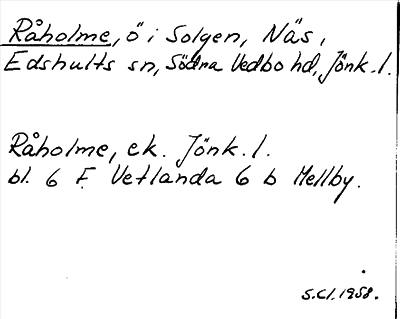 Råholme, ö i Solgen, Näs,
Edshults sn, Södra Vedbo hd, Jönk. l.
Råholme, ek. Jönk. l.
bl. 6 F. Vetlanda 6 b Mellby.
S.Cl. 1958.